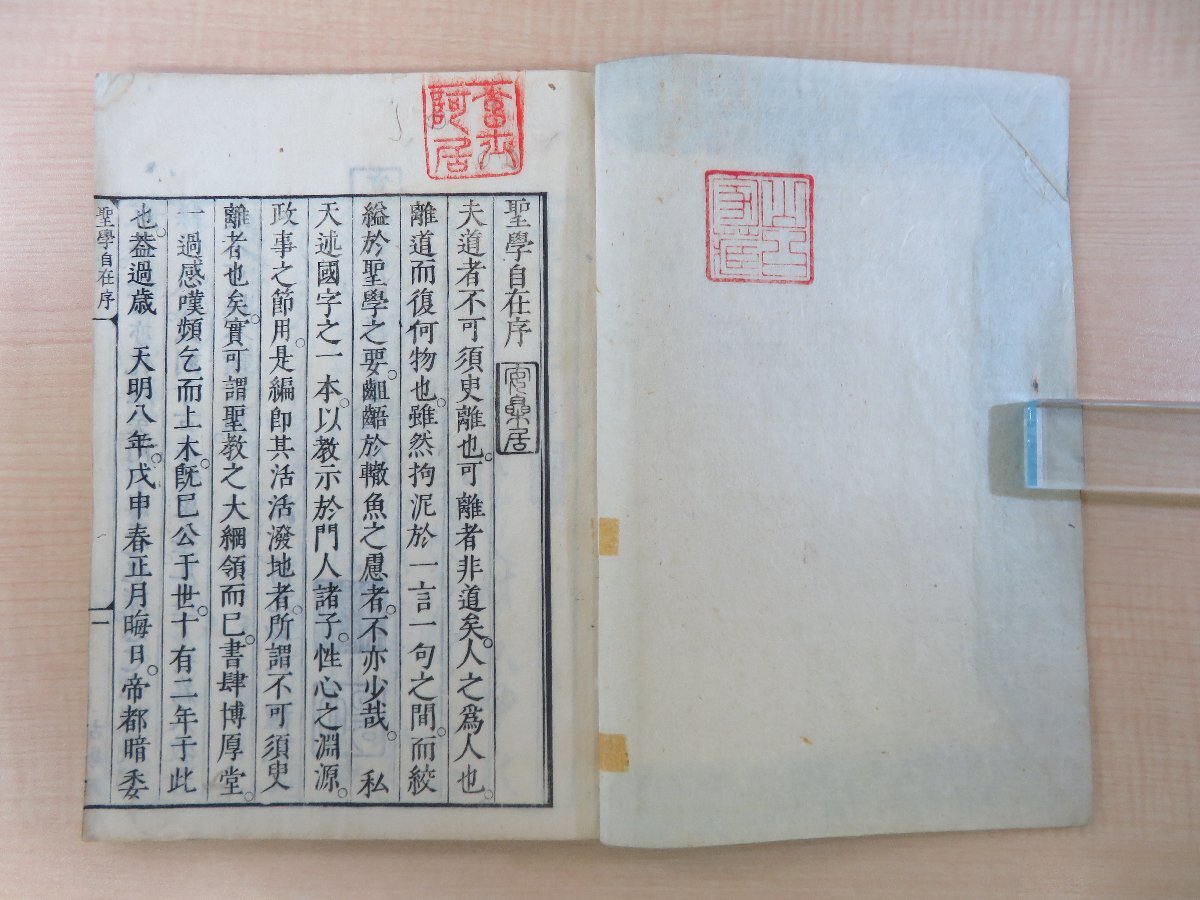 聖學自在序
夫道者不可須史離也。可離者非道矣。人之爲人也。
離道而復何物也。雖然拘泥於一言一句之間。而絞
縊於聖學之要。齟齬於轍魚之慮者。不亦少哉。私
天述國字之一本。以教示於門人諸子。性心之淵源。
政事之節用。是編卽其活活潑地者。所謂不可須史
離者也矣。實可謂聖教之大綱領而已。書肆博厚堂。
一過感嘆頻乞而上木。旣已公于世。十有二年于此
也。葢過歲 天明八年。戊申春正月晦日。帝都暗委
聖學自在序
一